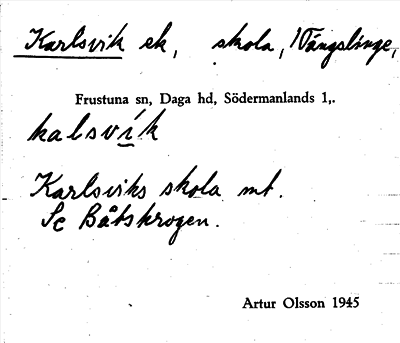 Karlsvik ek, skola, Vängslinge,
Frustuna sn, Daga hd, Södermanlands l,.
kalsvík
Karlsviks skola mt.
Se Båtskrogen.
Artur Olsson 1945